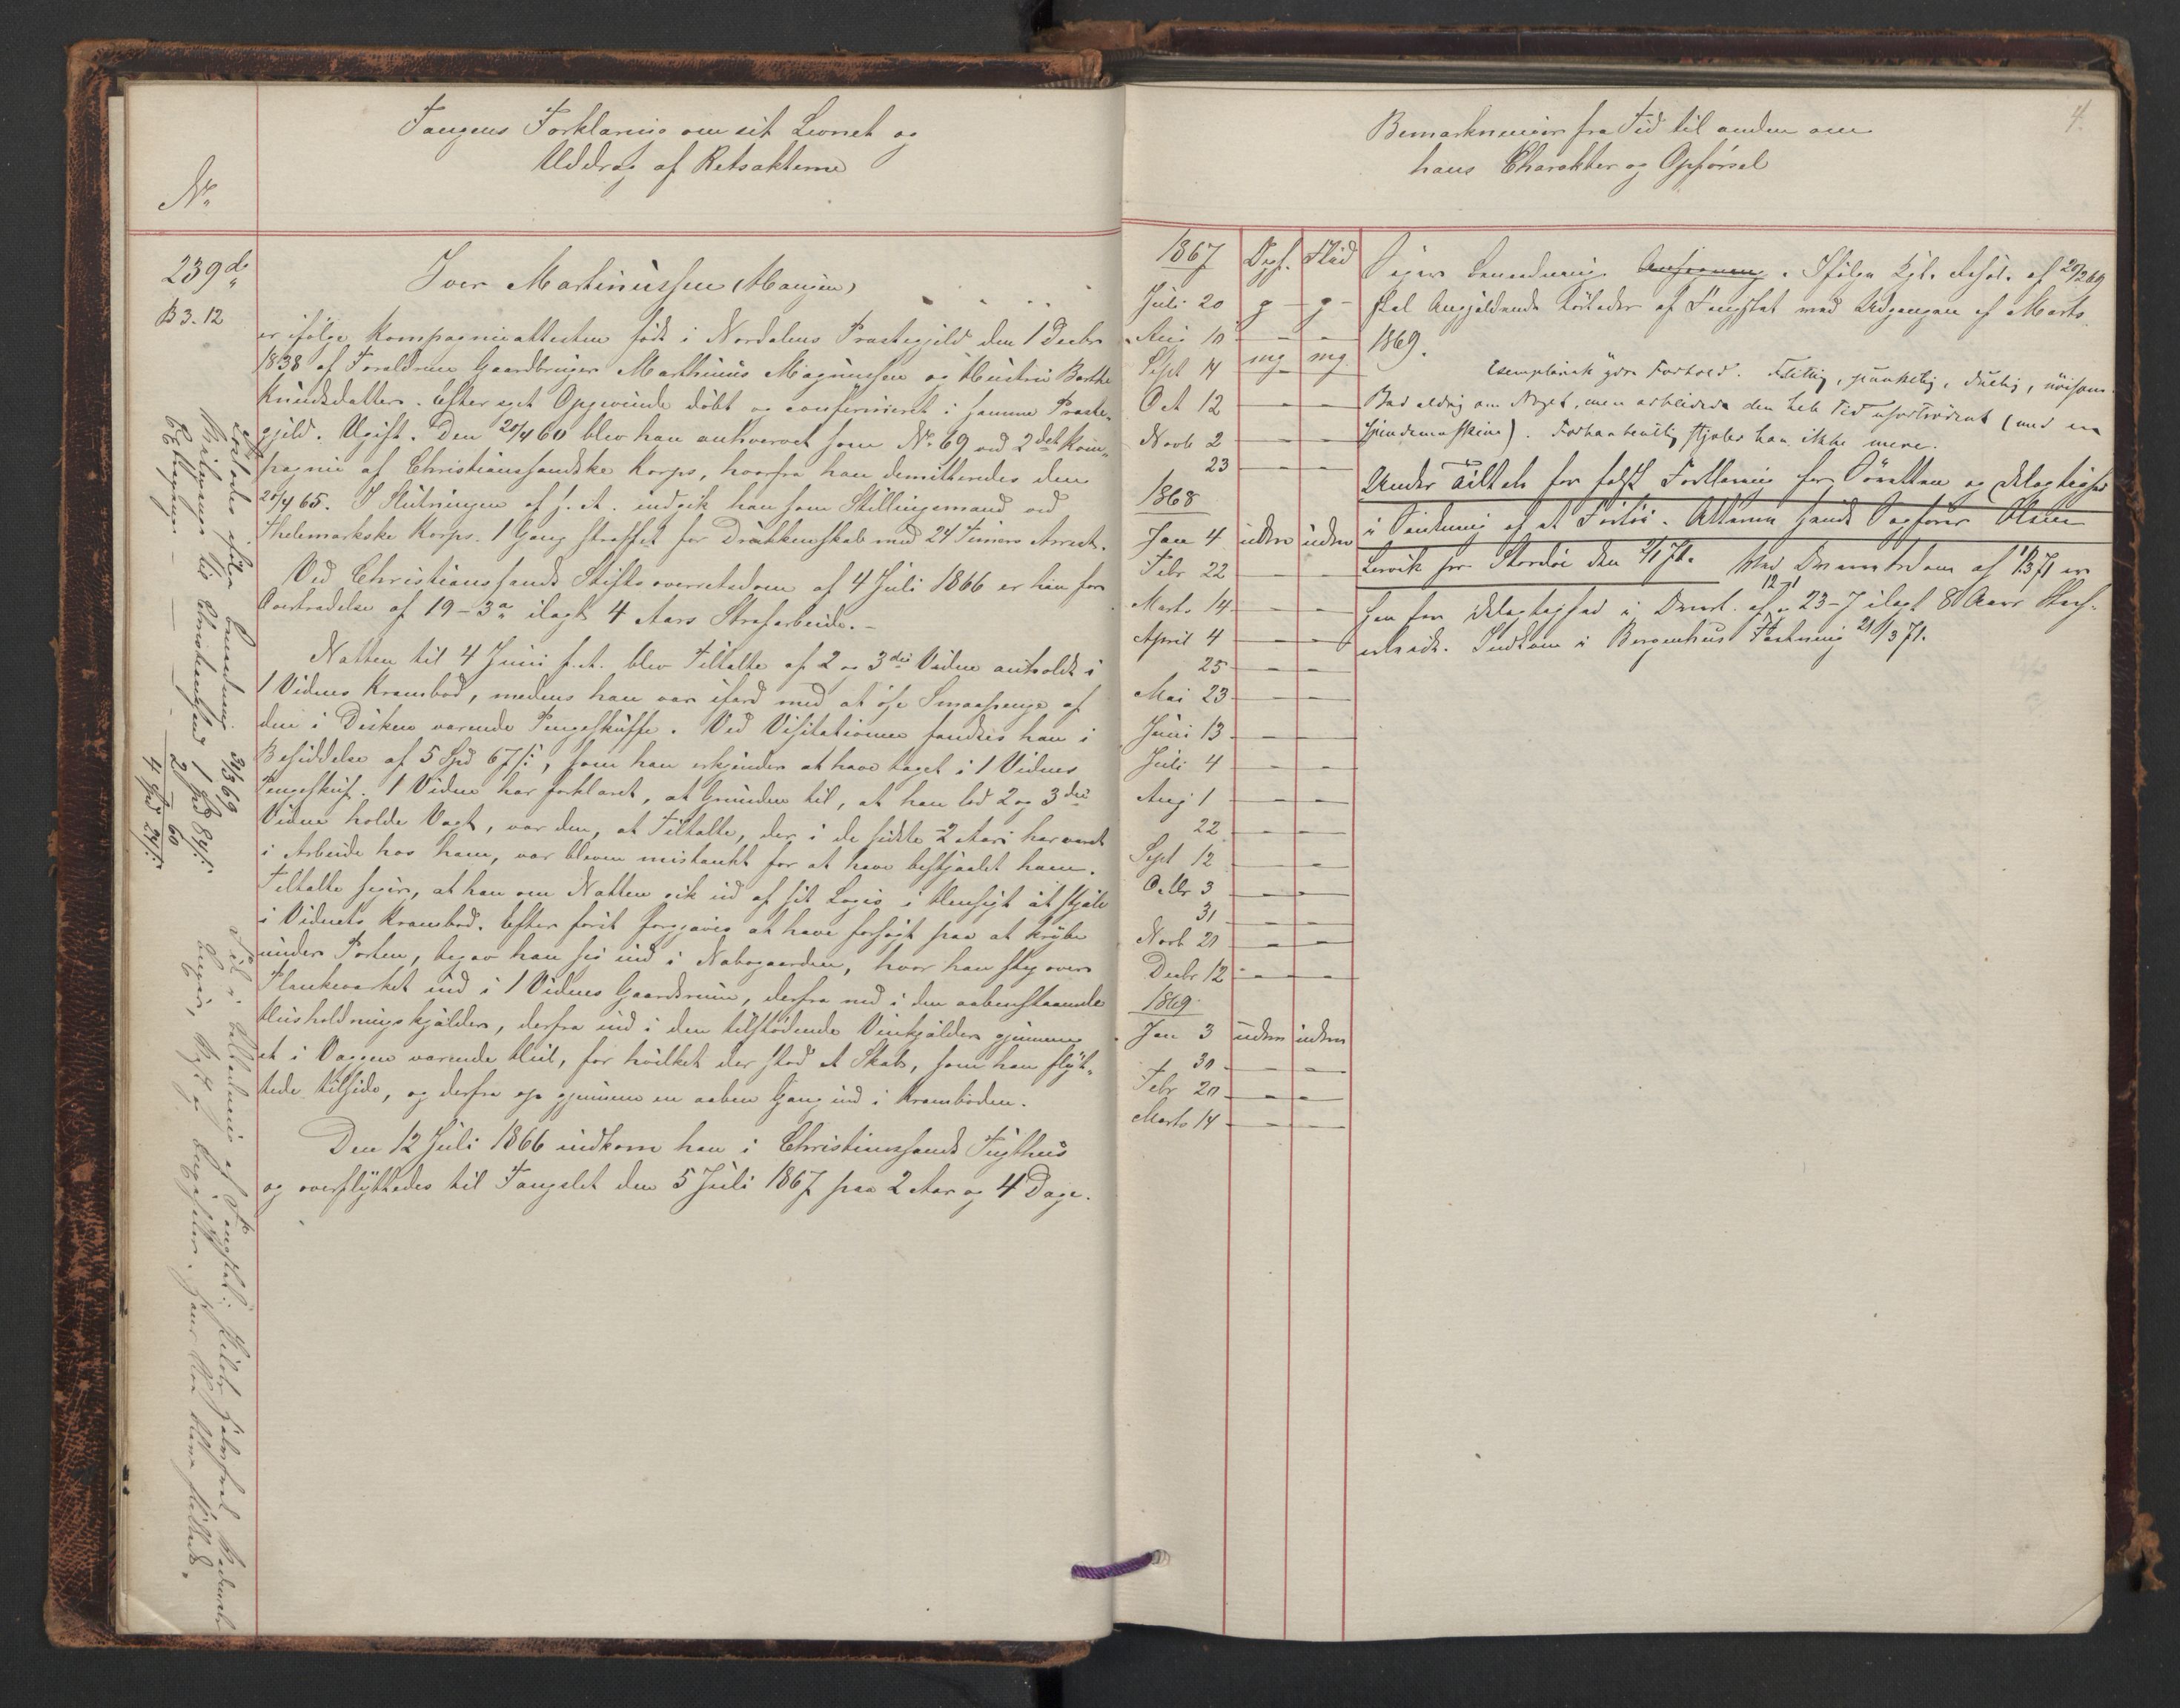 Fangens Forklaring om sit Levnet og
Uddrag af Retsakterne
No
239 de
B 3.12
Iver Martinussen (Mangen)
er ifølge Kompagnieattesten født i Nordalens Præstegjeld den 1 Decbr
1838 af Forældrene Gaardbruger Marthinus Magnussen og Hustru Berthe
Knudsdatter. Efter eget Opgivende døbt og confirmeret i samme Præste-
gjeld. Ugift. Den 20/4 60 blev han anhvervet som No 69 ved 2det Kom-
pagnie af Christianssandske Korps, hvorfra han demitteredes den
20/4 65. I Slutningen af f. A. indgik han som Stillingsmand ved
Thelemarkske Korps. 1 Gang straffet for Drukkenskab med 24 Timers Arrest.
Ved Christianssands Stiftsoverretsdom af 4 Juli 1866 er han for
Overtrædelse af 19-3a ilagt 4 Aars Strafarbeide.-
Natten til 4 Juni f. A. blev Tiltalte af 2 og 3die Vidne anholdt i
1 Vidnes Krambod, medens han var ifærd med at øse Smaapenge af
den i Disken værende Pengeskuffe. Ved Visitationen fandtes han i
Besiddelse af 5 Spd 67 s:, som han erkjender at have taget i 1 Vidnes
Pengeskuf. 1 Vidne har forklaret, at Grunden til, at han lod 2 og 3die
Vidne holde Vagt, var den, at Tiltalte, der i de sidste 2 Aar har været
i Arbeide hos ham, var bleven mistænkt for at have bestjaalet ham.
Tiltalte siger, at han om Natten gik ud af sit Logis i Hensigt at stjæle
i Vidnets Krambod. Efter først forgjæves at have forsøgt paa at krybe
under Porten, begav han sig ind i Nabogaarden, hvor han steg over
Plankeværket ind i 1 Vidnes Gaardsrum, derfra ned i den aabenstaaende
Husholdningskjælder, derfra ind i den tilstødende Vinkjælder gjennem
et i Væggen værende Hul, for hvilket der stod et Skab, som han flyt-
tede tilside, og derfra op gjennem en aaben Gang ind i Kramboden.
Den 12 Juli 1866 indkom han i Christianssands Tugthus
og overflyttedes til Fængslet den 5 Juli 1867 paa 2 Aar og 4 Dage.
Løslodes efter Benaadning 31/3 69
Reisepenge til Christianssand 1 Spd 84 s:
2 " 60
4 Spd 24 s:
Bemærkninger fra Tid til anden om
hans Charakter og Opførsel
4.
1867 Opf. Flid
Juli 20 g g
Aug 10 - -
Sept 14 mg mg
Oct 12 - -
Novb 2 - -
23 - -
1868
Jan 4 udm udm
Febr 22 - -
Marts 14 - -
April 4 - -
25 - -
Mai 23 - -
Juni 13 - -
Juli 4 - -
Aug 1 - -
22 - -
Sept 12 - -
Octbr 3 - -
31 - -
Novb 21 - -
Decbr 12 - -
1869
Jan 3 udm udm
30 - -
Febr 20 - -
Marts 14 - -
Søger Benaadning. Ifølge Kgl. Resol. af 20/2 69
skal Angjældende løslades af Fængslet med Udgangen af Marts
1869.
Exemplarisk ydre Forhold. Flittig, punktlig, duelig, nøisom.
Bad aldrig om Noget, men arbeidede den hele Tid ufortrødent (med en
Spindemaskine). Forhaabentlig stjæler han ikke mere.
Under Tiltale for falsk Forklaring for Søretten og Delagtighed
i Sænkning af et Fartøi. Sagfører Olsen
Lervik paa Stordø den 2/1 71. Ved Domme af 1/3 71 er
han for Delagtighed i Overt. af 12-1 23-7 ilagt 8 Aars Straf-
arbeide. Indkom i Bergenhus Fæstning 21/3 71.